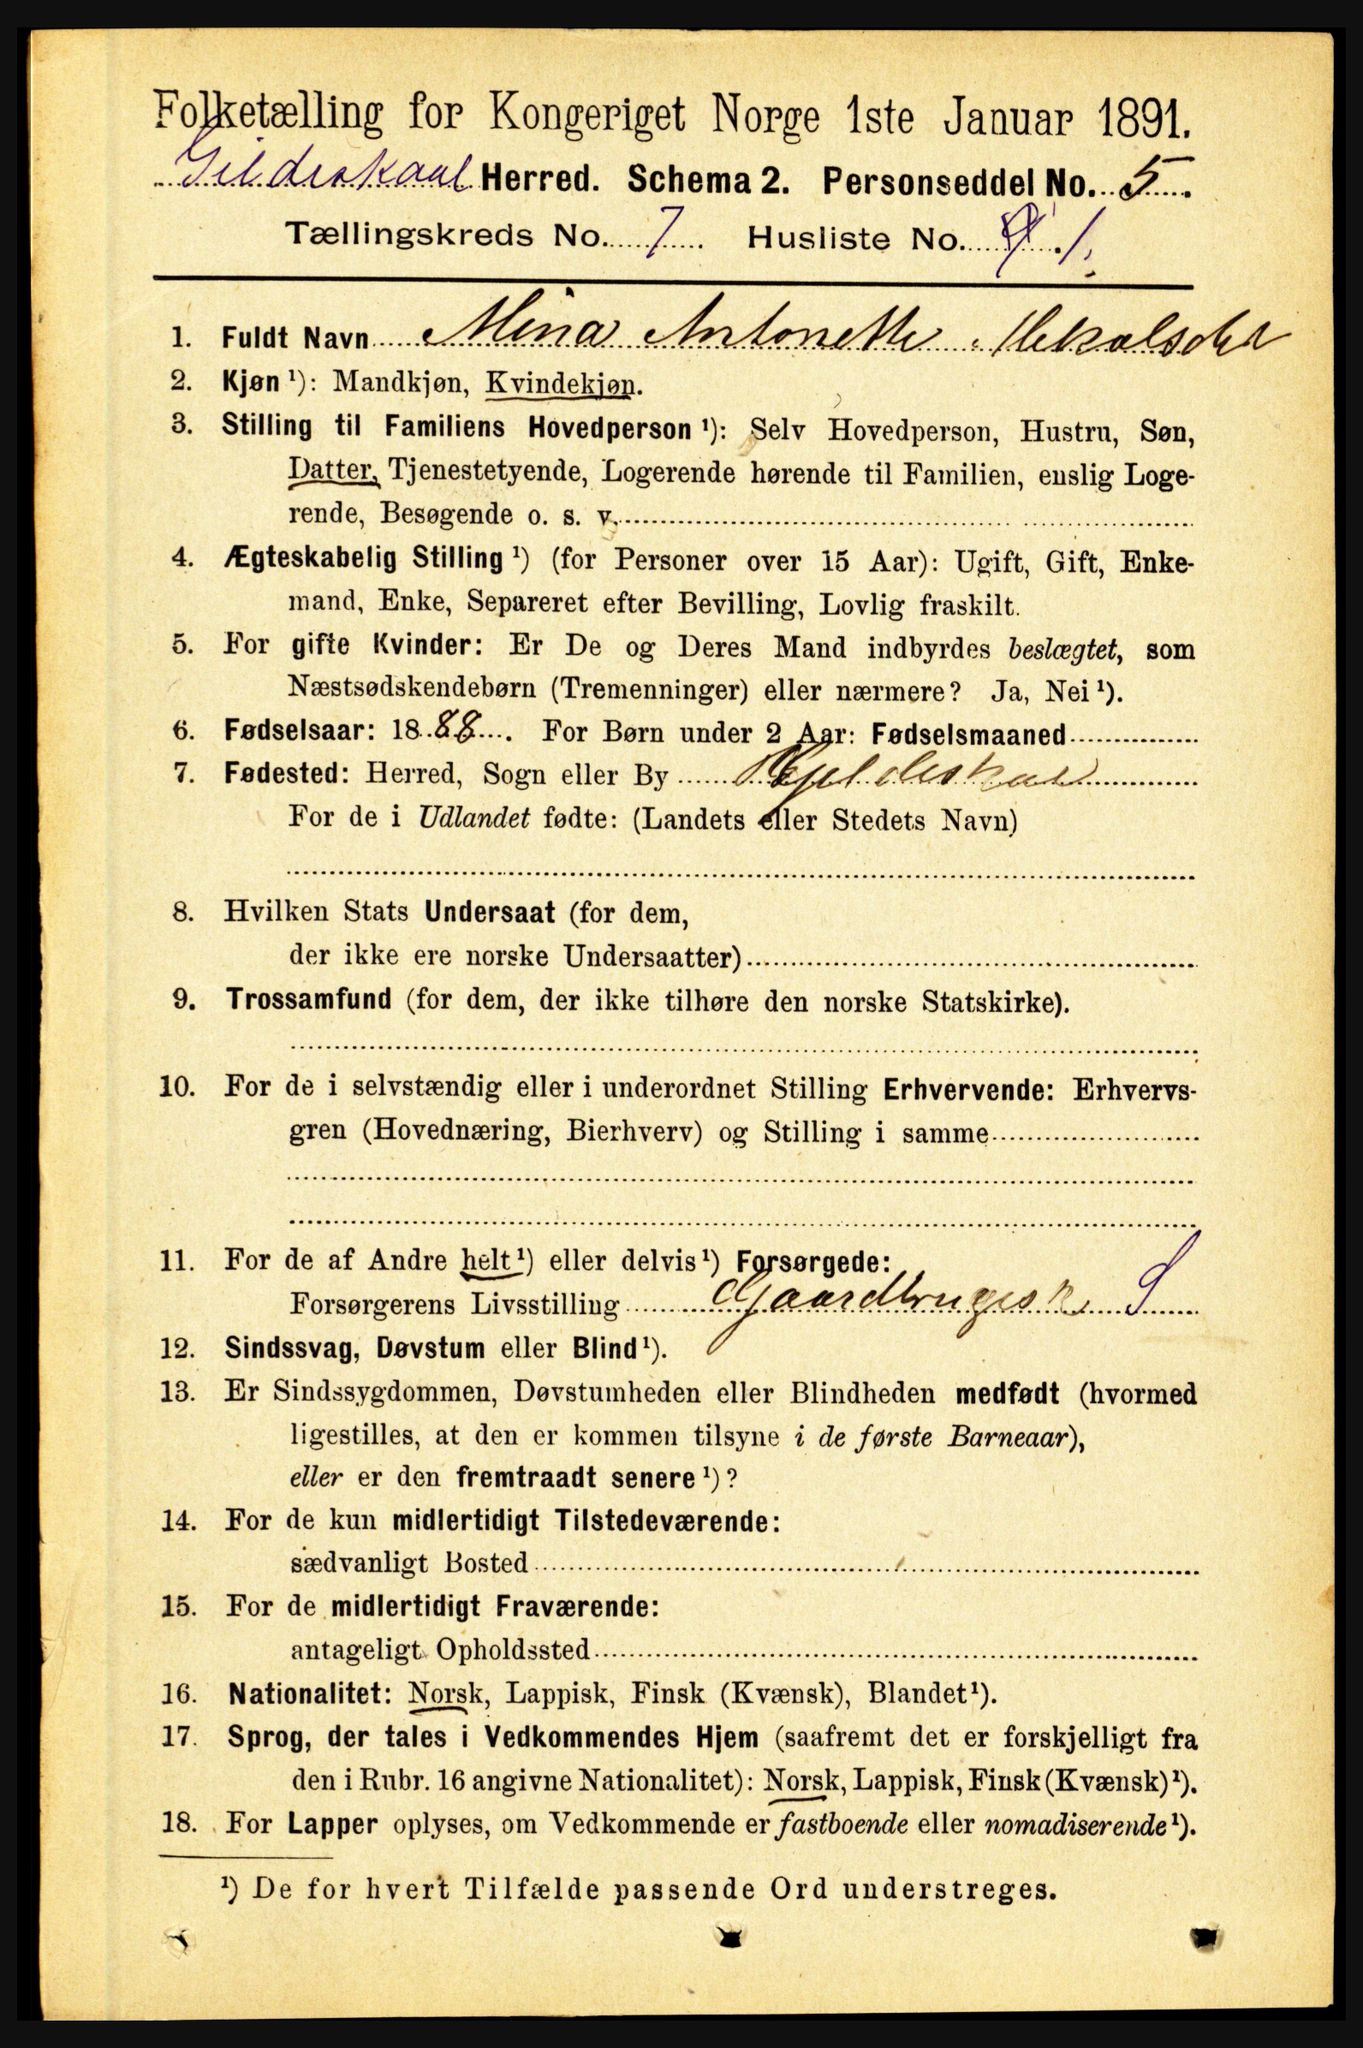 Folketælling for Kongeriget Norge 1ste Januar 1891.
Gildeskaal Herred. Schema 2. Personseddel No. 5.
Tællingskreds No. 7 Husliste No. 1.
1. Fuldt Navn Mina Antonette Mekalsdat
2. Kjøn ¹): Mandkjøn, Kvindekjøn.
3. Stilling til Familiens Hovedperson ¹): Selv Hovedperson, Hustru, Søn,
Datter, Tjenestetyende, Logerende hørende til Familien, enslig Loge-
rende, Besøgende o. s. v.
4. Ægteskabelig Stilling ¹) (for Personer over 15 Aar): Ugift, Gift, Enke-
mand, Enke, Separeret efter Bevilling, Lovlig fraskilt.
5. For gifte Kvinder: Er De og Deres Mand indbyrdes beslægtet, som
Næstsødskendebørn (Tremenninger) eller nærmere? Ja, Nei ¹).
6. Fødselsaar: 1888. For Børn under 2 Aar: Fødselsmaaned
7. Fødested: Herred, Sogn eller By Gjeldeskaal
For de i Udlandet fødte: (Landets eller Stedets Navn)
8. Hvilken Stats Undersaat (for dem,
der ikke ere norske Undersaatter)
9. Trossamfund (for dem, der ikke tilhøre den norske Statskirke).
10. For de i selvstændig eller i underordnet Stilling Erhvervende: Erhvervs-
gren (Hovednæring, Bierhverv) og Stilling i samme
11. For de af Andre helt ¹) eller delvis ¹) Forsørgede:
Forsørgerens Livsstilling Gaardbruger S
12. Sindssvag, Døvstum eller Blind ¹).
13. Er Sindssygdommen, Døvstumheden eller Blindheden medfødt (hvormed
ligestilles, at den er kommen tilsyne i de første Barneaar),
eller er den fremtraadt senere ¹)?
14. For de kun midlertidigt Tilstedeværende:
sædvanligt Bosted
15. For de midlertidigt Fraværende:
antageligt Opholdssted
16. Nationalitet: Norsk, Lappisk, Finsk (Kvænsk), Blandet ¹).
17. Sprog, der tales i Vedkommendes Hjem (saafremt det er forskjelligt fra
den i Rubr. 16 angivne Nationalitet): Norsk, Lappisk, Finsk (Kvænsk) ¹).
18. For Lapper oplyses, om Vedkommende er fastboende eller nomadiserende ¹).
¹) De for hvert Tilfælde passende Ord understreges.